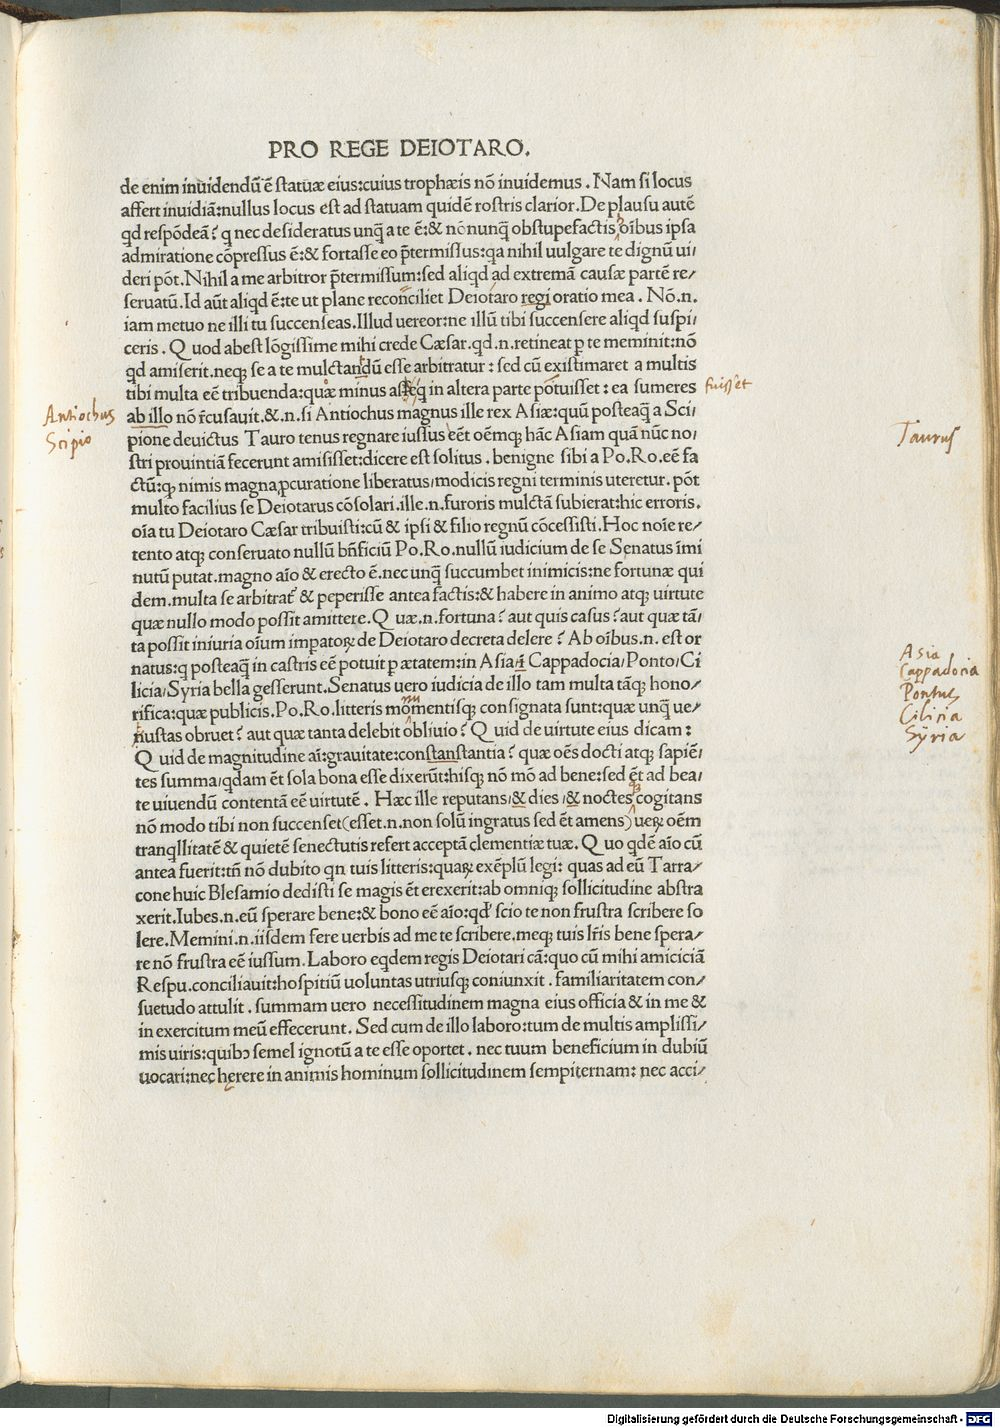 PRO REGE DEIOTARO.
de enim inuidendū ē statuæ eius:cuius trophæis nō inuidemus . Nam si locus
affert inuidiā:nullus locus est ad statuam quidē rostris clarior. De plausu autē
qd respōdeā? q nec desideratus unq̄ a te ē:& nōnunq̄ obstupefactis oībus ipsa
admiratione cōpressus ē:& fortasse eo p̄termissus:qa nihil uulgare te dignū ui/
deri pōt. Nihil a me arbitror p̄termissum:sed aliqd ad extremā causæ partē re/
seruatū. Id aūt aliqd ē:te ut plane reconciliet Deiotaro regi oratio mea . Nō.n.
iam metuo ne illi tu succenseas. Illud uereor:ne illū tibi succensere aliqd suspi/
ceris . Quod abest lōgissime mihi crede Cæsar.qd.n.retineat p te meminit:nō
qd amiserit.neqꝫ se a te mulctandū esse arbitratur : sed cū existimaret a multis
tibi multa eē tribuenda:quæ minus in altera parte potuisset : ea sumeres
fuiss&t
ab illo nō r̄cusauit.&.n.si Antiochus magnus ille rex Asiæ:quū posteaq̄ a Sci/
Antiochus
Scipio
pione deuictus Tauro tenus regnare iussus eēt oēmqꝫ hāc Asiam quā nūc no/
Taurus
stri prouintiā fecerunt amisisset:dicere est solitus . benigne sibi a Po.Ro.eē fa
ctū:qꝫ nimis magna ꝓcuratione liberatus/modicis regni terminis uteretur. pōt
multo facilius se Deiotarus cōsolari.ille.n.furoris mulctā subierat:hic erroris.
oīa tu Deiotaro Cæsar tribuisti:cū & ipsi & filio regnū cōcessisti. Hoc noīe re/
tento atqꝫ conseruato nullū bn̄ficiū Po.Ro.nullū iudicium de se Senatus īmi
nutū putat.magno aīo & erecto ē.nec unq̄ succumbet inimicis:ne fortunæ qui
dem.multa se arbitrat̄ & peperisse antea factis:& habere in animo atqꝫ uirtute
quæ nullo modo possit amittere. Quæ.n.fortuna? aut quis casus? aut quæ tā/
ta possit iniuria oīum impatoꝝ de Deiotaro decreta delere? Ab oībus.n. est or
natus:q posteaq̄ in castris eē potuit p ætatem:in Asia/ī Cappadocia/Ponto/Ci
licia/Syria bella gesserunt. Senatus uero iudicia de illo tam multa tāqꝫ hono/
Asia
Cappadocia
Pontus
Cilicia
Syria
rifica:quæ publicis.Po.Ro.litteris momentisqꝫ consignata sunt:quæ unq̄ ue/
nustas obruet? aut quæ tanta delebit obliuio? Quid de uirtute eius dicam:
Quid de magnitudine aī:grauitate:constanstantia? quæ oēs docti atqꝫ sapiē/
tes summa/qdam ēt sola bona esse dixerūt:hisqꝫ nō mō ad bene:sed ēt ad bea/
te uiuendū contentā eē uirtutē . Hæc ille reputans/& dies /& noctes cogitans
nō modo tibi non succenset(esset.n.non solū ingratus sed ēt amens)ueꝝ oēm
tranqllitatē & quietē senectutis refert acceptā clementiæ tuæ. Quo qdē aīo cū
antea fuerit:tn̄ nō dubito qn tuis litteris:quaꝝ exēplū legi: quas ad eū Tarra/
cone huic Blesamio dedisti se magis ēt erexerit:ab omniqꝫ sollicitudine abstra
xerit. Iubes.n.eū sperare bene:& bono eē aīo:qd' scio te non frustra scribere so
lere. Memini.n.iisdem fere uerbis ad me te scribere.meqꝫ tuis lr̄is bene spera/
re nō frustra eē iussum. Laboro eqdem regis Deiotari cā:quo cū mihi amiciciā
Respu.conciliauit:hospitiū uoluntas utriusqꝫ coniunxit . familiaritatem con/
suetudo attulit . summam uero necessitudinem magna eius officia & in me &
in exercitum meū effecerunt. Sed cum de illo laboro:tum de multis amplissi/
mis uiris:quibꝰ semel ignotū a te esse oportet . nec tuum beneficium in dubiū
uocari:nec hęrere in animis hominum sollicitudinem sempiternam: nec acci/
Digitalisierung gefördert durch die Deutsche Forschungsgemeinschaft - DFG